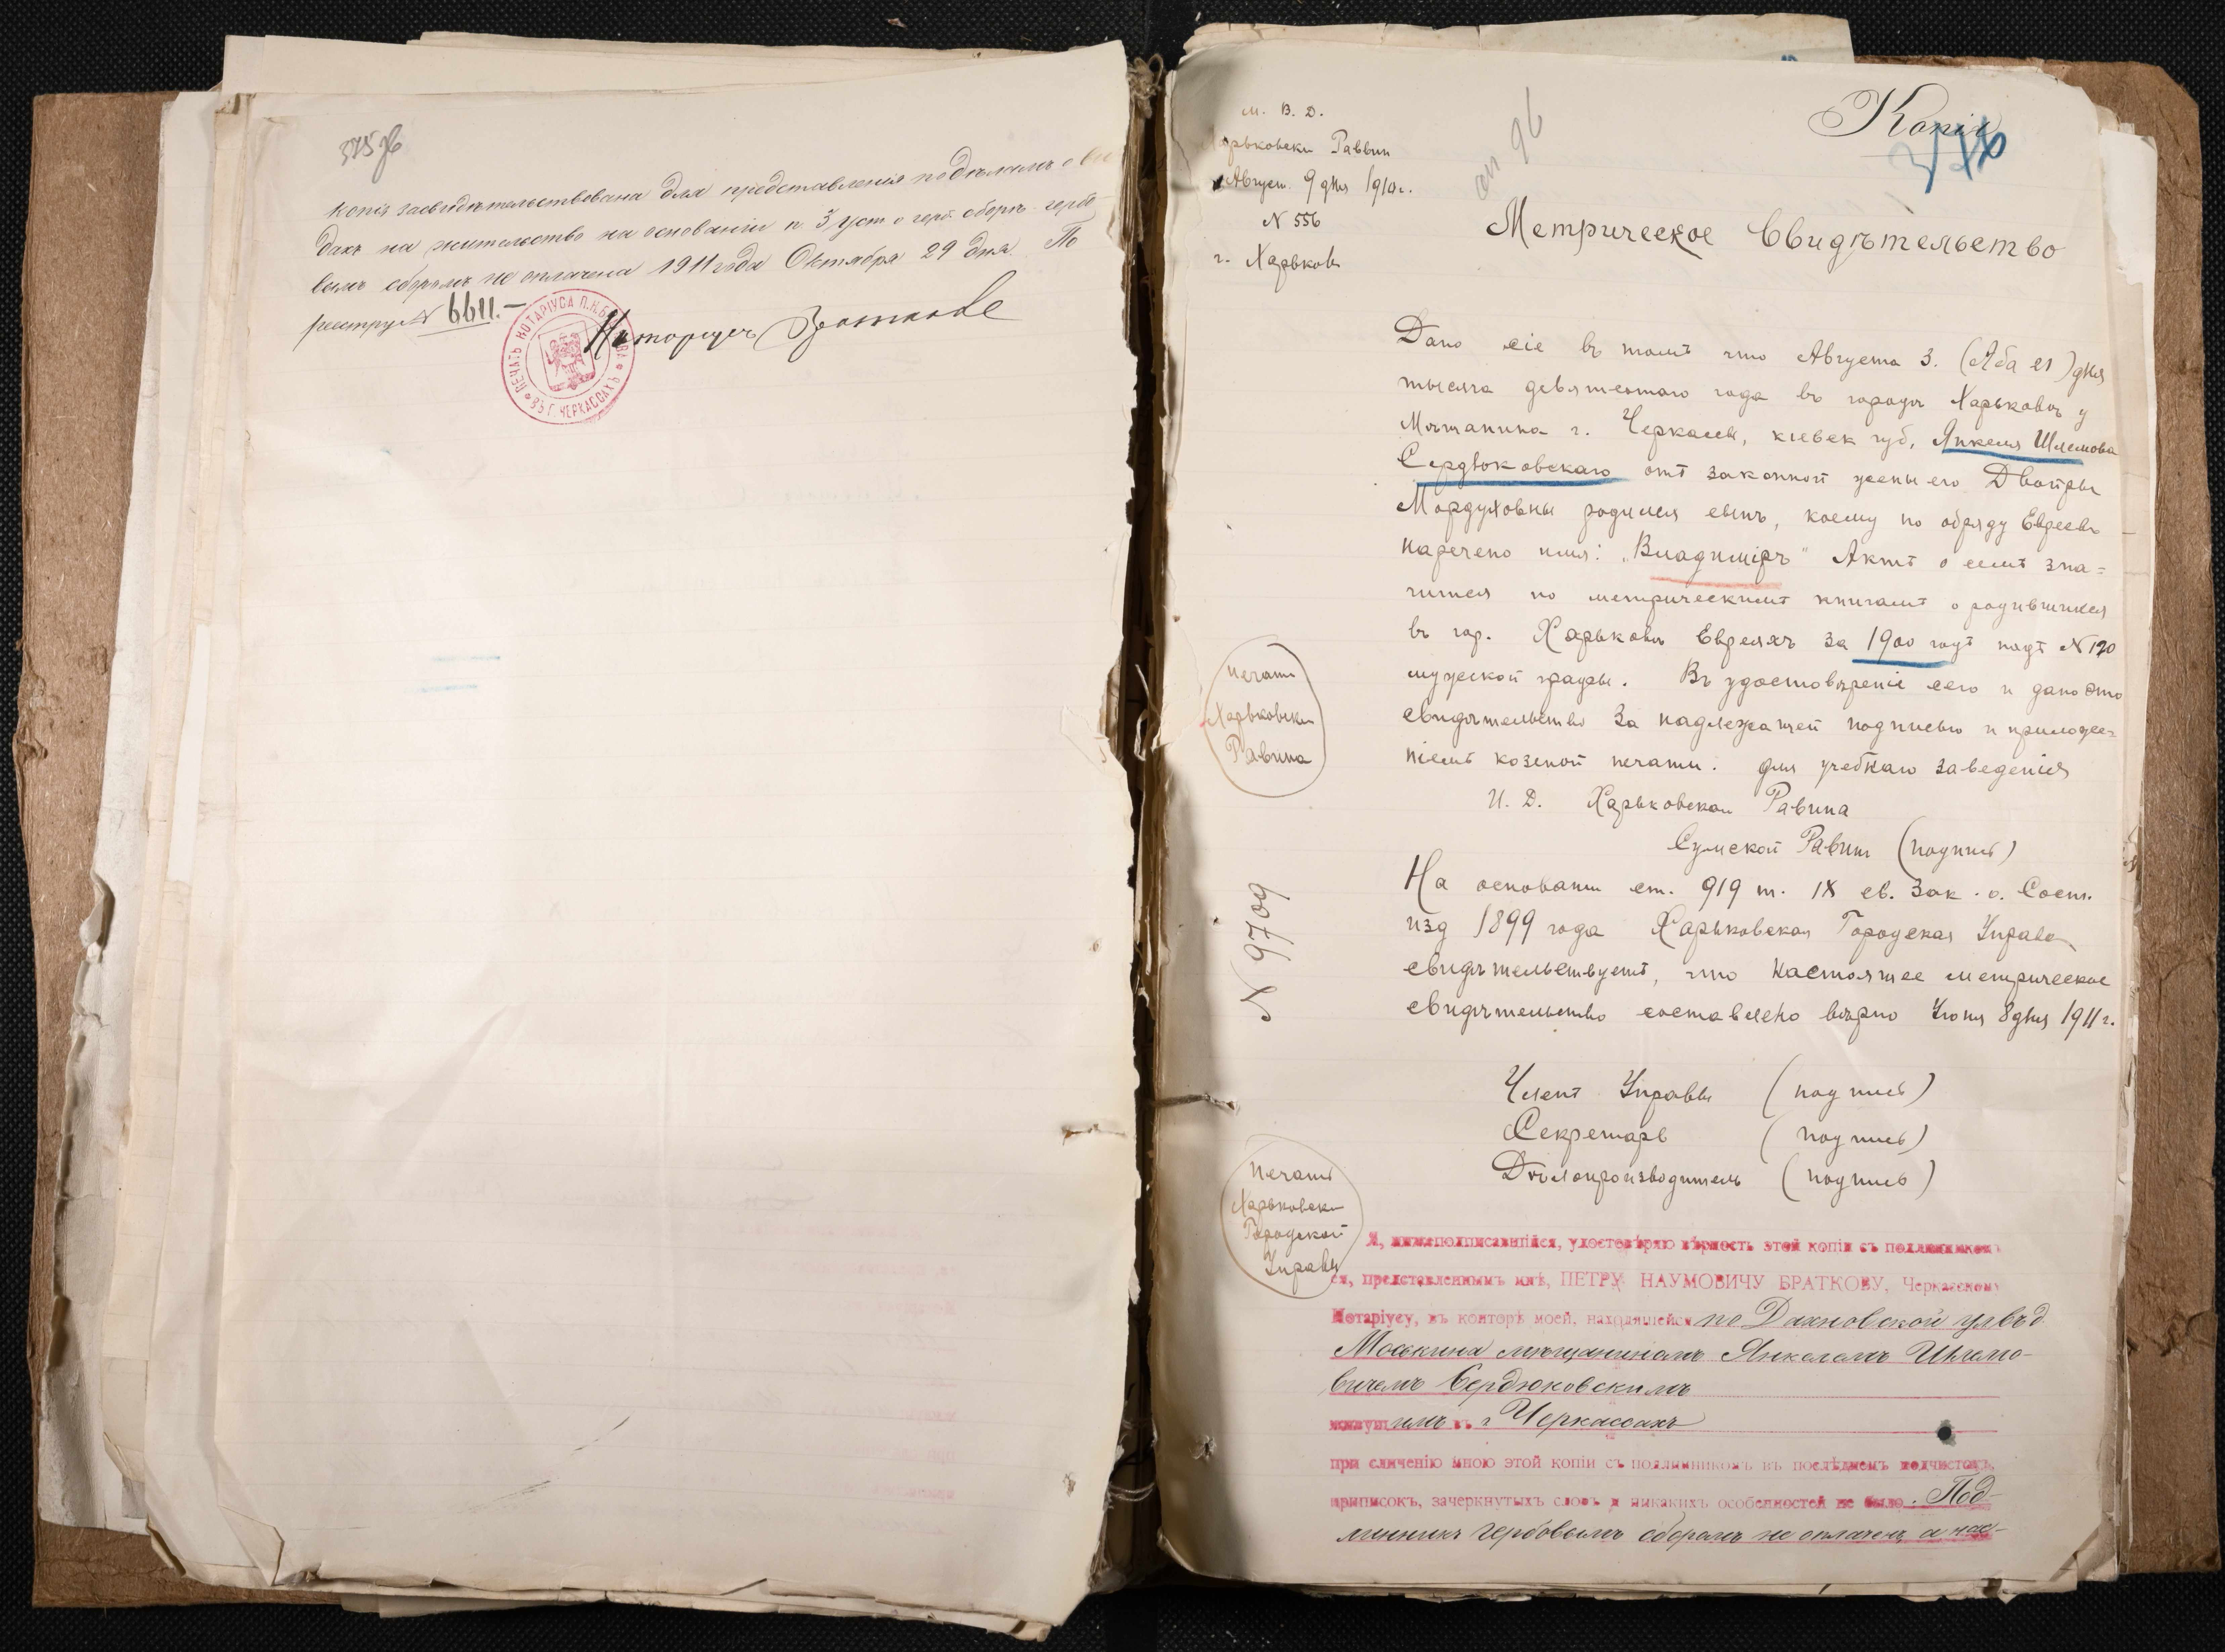 375 об
копія засвидѣтельствована для представленія по дѣламъ о ви
дахъ на жительство на основаніи п. 3 уст о герб. сборѣ гербо
вымъ сборомъ не оплачена 1911 года Октября 29 дня. По
реестру № 6611.-
Нотаріусъ Братковъ
ПЕЧАТЬ НОТАРІУСА П.Н.БРАТКОВА ВЪ Г. ЧЕРКАССАХЪ
Копія
М. В. Д.
Харьковски Раввин
Август. 9 дня 1910 г.
N 556
г. Харьковъ
Метрическое Свидѣтельство
Дано сіе въ томъ что Августа 3. (Аба 21) дня
тысяча девятсотаго года въ городѣ Харьковѣ у
Мѣщанина г. Черкассы, кіевск губ, Янкеля Шлемова
Сердюковскаго отъ законной жены его Двойры
Мордуховны родился сынъ, коему по обряду Евреевъ
наречено имя: „Владиміръ" Актъ о семъ зна=
чится по метрическимъ книгамъ о родившихся
въ гор. Харьковѣ Евреяхъ за 1900 годъ подъ N 120
мужской графы. Въ удостовѣреніе сего и дано это
свидѣтельство за надлежащей подписью и приложе=
ніемъ козеной печати. для учебнаго заведенія
И. Д. Харьковскаи Равина
Сумской Равин (подпись)
печать
Харьковски
Равина
На основани ст. 919 т. IX св. Зак. о. Сост.
изд 1899 года Харьковская Городская Управа
свидѣтельствуетъ, что настоящее метрическое
свидѣтельство составлено вѣрно Июня 8 дня 1911 г.
N 9709
Членъ Управы (подпись)
Секретарь (подпись)
Дѣлопроизводитель (подпись)
печать
Харьковски
Городской
Управы
Я, нижеподписавшійся, удостовѣряю вѣрность этой копіи съ подлинникомъ
ея, представленнымъ мнѣ, ПЕТРУ НАУМОВИЧУ БРАТКОВУ, Черкасскому
Нотаріусу, въ конторѣ моей, находящейся по Дахновской ул въ д
Моськина мѣщаниномъ Янкелемъ Шлемо-
вичемъ Сердюковскимъ
живущимъ въ г Черкассахъ
при сличенію мною этой копіи съ подлинникомъ въ послѣднемъ подчистокъ,
приписокъ, зачеркнутыхъ словъ и никакихъ особенностей не было. Под-
линникъ гербовымъ сборомъ не оплаченъ, а нас-